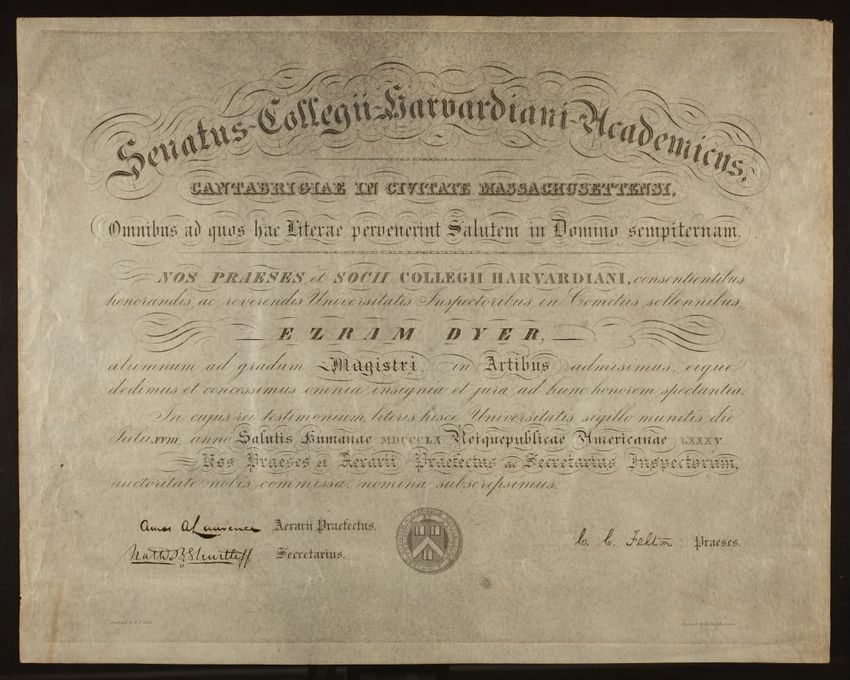 Senatus-Collegii-Harvardiani-Academicus,
CANTABRIGIAE IN CIVITATE MASSACHUSETTENSI,
Omnibus ad quos hae Literae pervenerint Salutem in Domino sempiternam.
NOS PRAESES et SOCII COLLEGII HARVARDIANI, consentientibus
honorandis ac reverendis Universitatis Inspectoribus in Comitiis sollennibus
EZRAM DYER,
alumnum ad gradum Magistri in Artibus admisimus, eique
dedimus et concessimus omnia insignia et jura ad hunc honorem spectantia.
In cujus rei testimonium literis hisce Universitatis sigillo munitis die
Julii XVIII anno Salutis Humanae MDCCCLX Reique publicae Americanae LXXXV
Nos Praeses et Aerarii Praefectus ac Secretarius Inspectorum,
auctoritate nobis commissa, nomina subscripsimus.
Amos A Lawrence Aerarii Praefectus.
C. C. Felton Praeses.
Nath'l B Shurtleff Secretarius.